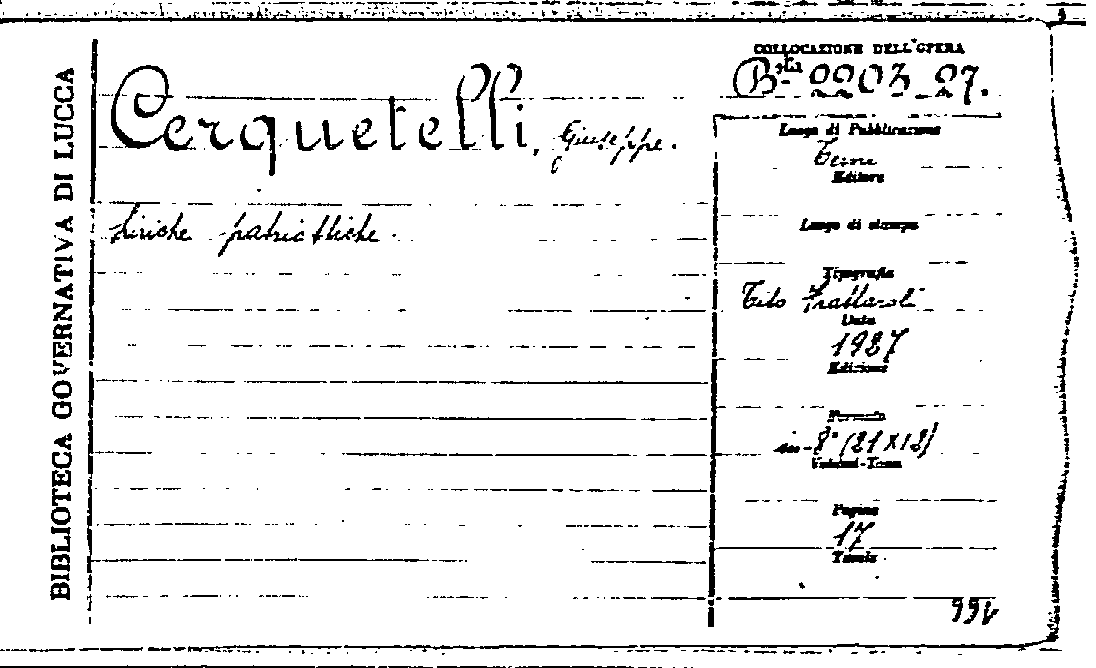 BIBLIOTECA GOVERNATIVA DI LUCCA
Cerquetelli, Giuseppe.
Liriche patriottiche.
COLLOCAZIONE DELL'OPERA
B.ta 2203_27.
Luogo di Pubblicazione
Terni
Editore
Luogo di stampa
Tipografia
Tito Frattaroli
Data
1927
Edizione
Formato
in-8° (21×12)
Volumi-Tomi
Pagine
17
Tavole